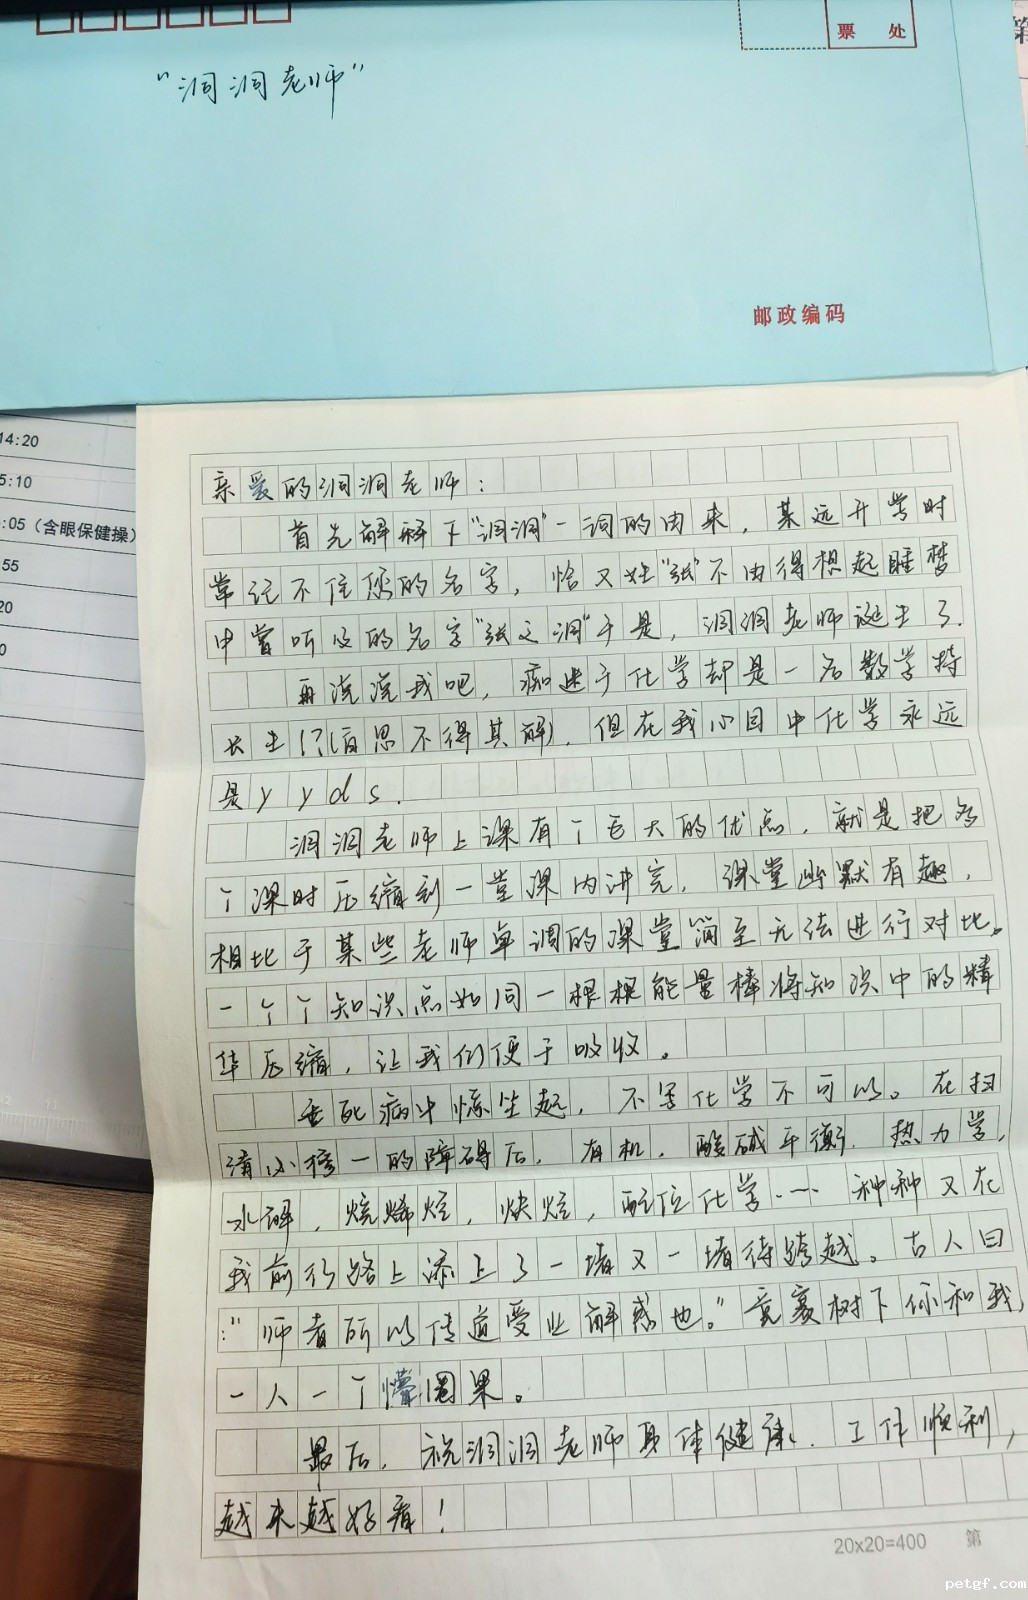 票 处
第
"洞洞老师"
邮政编码
14:20
5:10
:05（含眼保健操）
55
20
0
亲爱的洞洞老师：
首先解释下"洞洞"一词的由来，某远开学时
常记不住您的名字，恰又姓"张"不由得想起睡梦
中常听及的名字"张之洞"于是，洞洞老师诞生了.
再说说我吧，痴迷于化学却是一名数学特
长生！？（百思不得其解），但在我心目中化学永远
是yyds.
洞洞老师上课有个巨大的优点，就是把多
个课时压缩到一堂课内讲完，课堂幽默有趣，
相比于某些老师单调的课堂简至无法进行对比。
一个个知识点如同一根根能量棒将知识中的精
华压缩，让我们便于吸收。
垂死病中惊坐起，不学化学不可以。在扫
清必修一的障碍后，有机，酸碱平衡，热力学，
水解，烷烯烃，炔烃，配位化学……种种又在
我前行路上添上了一堵又一堵待跨越。古人曰
："师者所以传道受业解惑也。"竟裹树下你和我，
一人一个懵圈果。
最后，祝洞洞老师身体健康，工作顺利，
越来越好看！
20x20=400 第
petgf.com